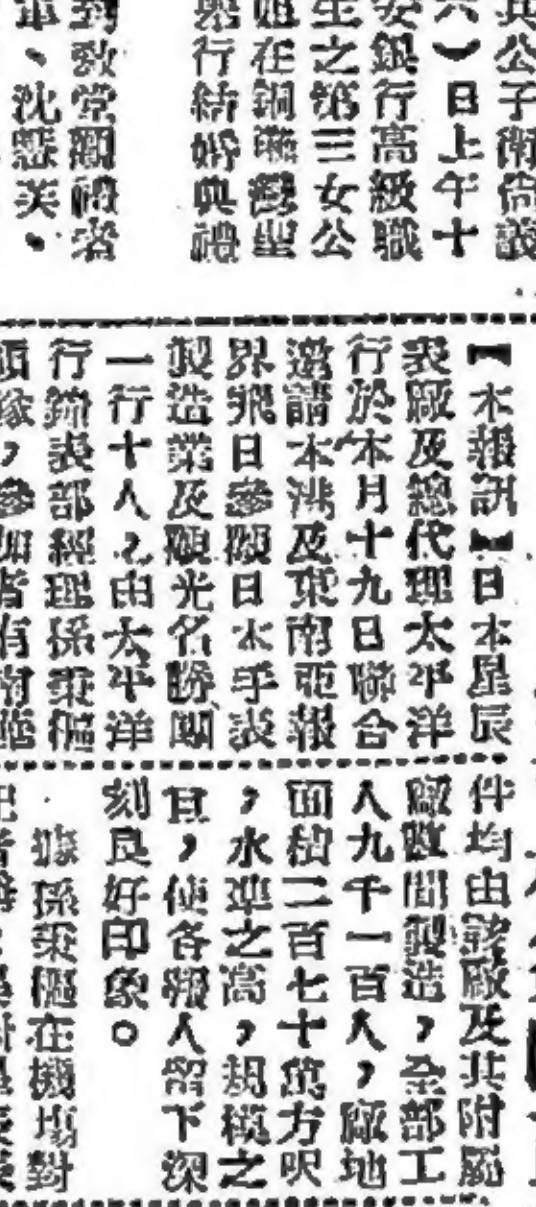 其公子衛尙義
六）日上午十
安銀行高級職
生之第三女公
姐在銅鑼灣聖
舉行結婚典禮
到敎堂觀禮者
【本報訊】日本星辰
表廠及總代理太平洋
行於本月十九日聯合
邀請本港及東南亞報
界飛日參觀日本手表
製造業及觀光名勝團
一行十人，由太平洋
行鐘表部經理孫秉樞
領隊，參加者有南華
件均由該廠及其附屬
廠數間製造，全部工
人九千一百人，廠地
面積二百七十萬方呎
，水準之高，規模之
宜，使各報人留下深
刻良好印象。
據孫秉樞在機場對